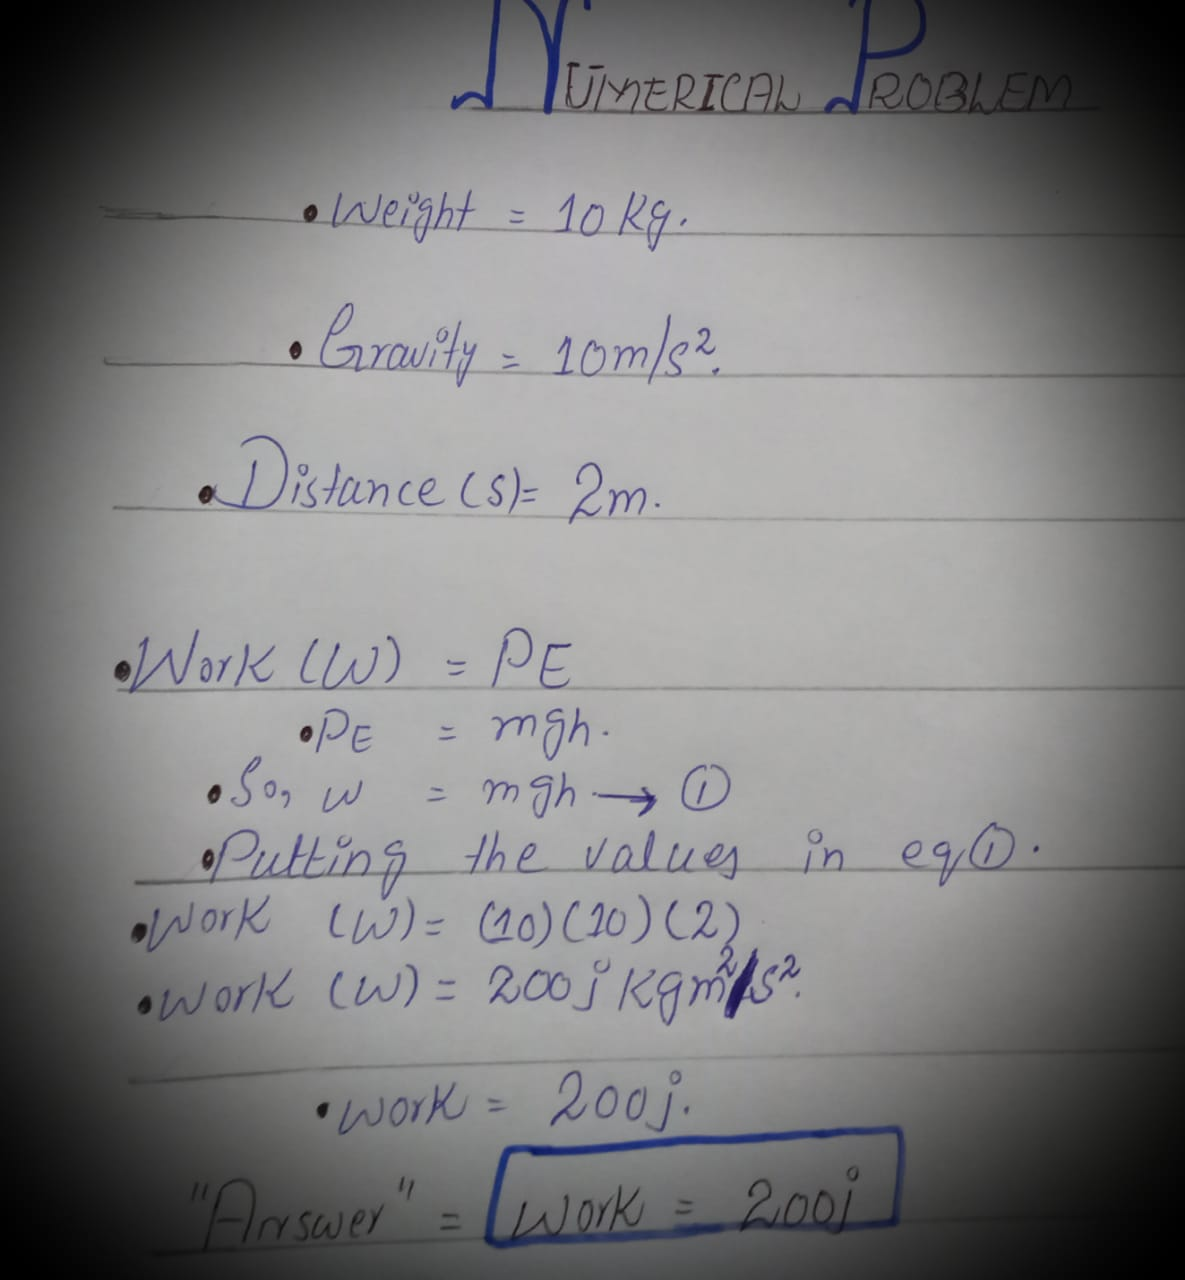 NUMERICAL PROBLEM
• Weight = 10 kg.
• Gravity = 10m/s².
• Distance (S)= 2m.
• Work (W) = PE
• PE = mgh.
• So, w = mgh → ①
• Putting the values in eq①.
• Work (W)= (10)(10)(2)
• Work (W) = 200j kgm²/s².
• work = 200j.
"Answer" = Work = 200j